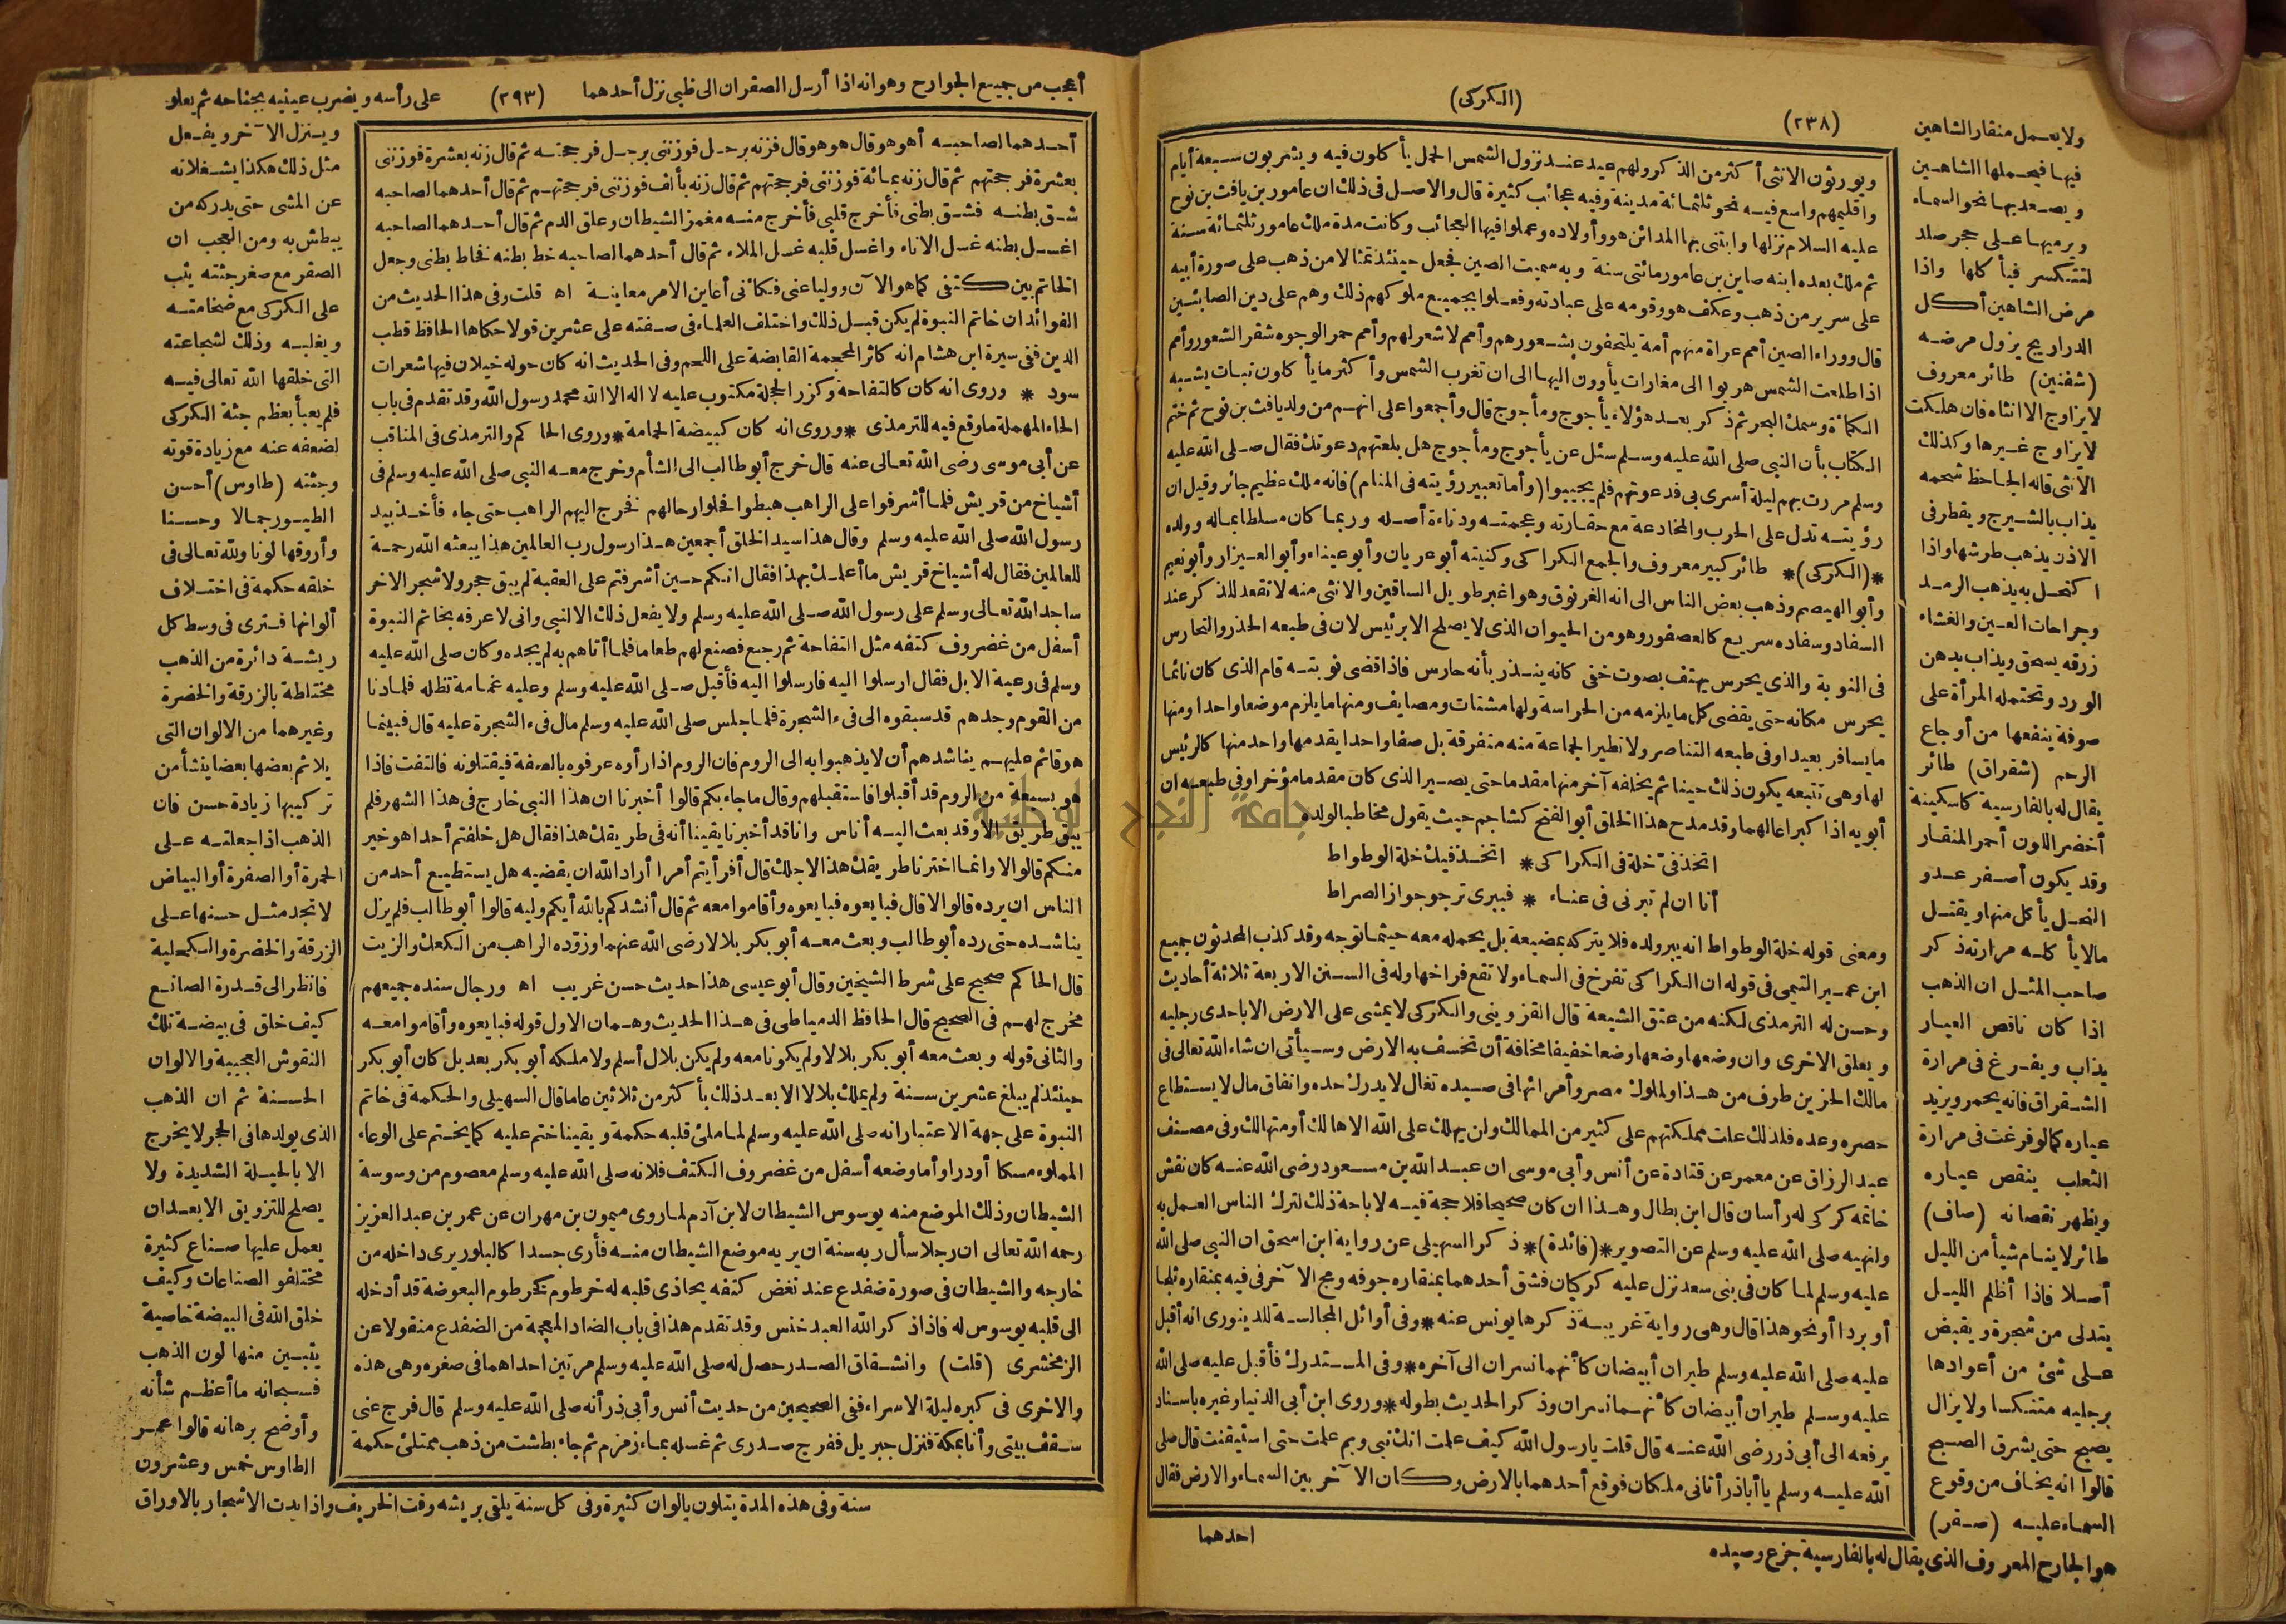 (الكركى)
(٢٣٨)
ويورثون الانثى أكثر من الذكر ولهم عيد عند نزول الشمس الحمل يأكلون فيه ويشربون سبعة أيام
واقليمهم واسع فيه نحو ثلثمائة مدينة وفيه عجائب كثيرة قال والاصل فى ذلك ان عامور بن يافث بن نوح
عليه السلام نزلها وابتنى بها المدائن هو وأولاده وعملوا فيها العجائب وكانت مدة ملك عامور ثلثمائة سنة
ثم ملك بعده ابنه صاين بن عامور مائتى سنة وبه سميت الصين فجعل حينئذ تمثالا من ذهب على صورة أبيه
على سرير من ذهب وعكف هو وقومه على عبادته وفعلوا بجميع ملوكهم ذلك وهم على دين الصابئين
قال ووراء الصين أمم عراة منهم أمة يلتحفون بشعورهم وأمم لا شعور لهم وأمم حمر الوجوه شقر الشعور وأمم
اذا طلعت الشمس هربوا الى مغارات يأوون اليها الى ان تغرب الشمس وأكثر ما يأكلون نبات يشبه
الكمأة وسمك البحر ثم ذكر بعد هؤلاء يأجوج ومأجوج قال وأجمعوا على انهم من ولد يافث بن نوح ثم ختم
الكتاب بأن النبى صلى الله عليه وسلم سئل عن يأجوج ومأجوج هل بلغتهم دعوتك فقال صلى الله عليه
وسلم مررت بهم ليلة أسرى بى فدعوتهم فلم يجيبوا (وأما تعبير رؤيته فى المنام) فانه ملك عظيم جائر وقيل ان
رؤيته تدل على الحرب والمخادعة مع حقارته وعجمته ودناءة أصله وربما كان مسلطا بماله وولده
*(الكركى)* طائر كبير معروف والجمع الكراكى وكنيته أبو عريان وأبو عيناء وأبو العيزار وأبو نعيم
وأبو الهيصم وذهب بعض الناس الى انه الغرنوق وهو اغبر طويل الساقين والانثى منه لا تقعد للذكر عند
السفاد وسفاده سريع كالعصفور وهو من الحيوان الذى لا يصلح الا برئيس لان فى طبعه الحذر والتحارس
فى النوبة والذى يحرس يهتف بصوت خفى كانه ينذر بأنه حارس فاذا قضى نوبته قام الذى كان نائما
يحرس مكانه حتى يقضى كل ما يلزمه من الحراسة ولها مشتات ومصايف ومنها ما يلزم موضعا واحدا ومنها
ما يسافر بعيدا وفى طبعه التناصر ولا تطير الجماعة منه متفرقة بل صفا واحدا يقدمها واحد منها كالرئيس
لها وهى تتبعه يكون ذلك حينا ثم يخلفه آخر منها مقدما حتى يصير الذى كان مقدما مؤخرا وفى طبعه ان
أبويه اذا كبرا عالهما وقد مدح هذا الخلق أبو الفتح كشاجم حيث يقول مخاطبا لولده
اتخذ فىّ خلة فى الكراكى * اتخذ فيك خلة الوطواط
أنا ان لم تبرنى فى عناء * فببرى ترجو جواز الصراط
ومعنى قوله خلة الوطواط انه يبر ولده فلا يتركه بمضيعة بل يحمله معه حيثما توجه وقد كذب المحدثون جميع
ابن عمير التيمى فى قوله ان الكراكى تفرخ فى السماء ولا تقع فراخها وله فى السنن الاربعة ثلاثة أحاديث
وحسن له الترمذى لكنه من عتق الشيعة قال القزوينى والكركى لا يمشى على الارض الا باحدى رجليه
ويعلق الاخرى وان وضعها وضعها وضعا خفيفا مخافة أن تخسف به الارض وسيأتى ان شاء الله تعالى فى
مالك الحزين طرف من هذا ولملوك مصر وأمرائها فى صيده تغال لا يدرك حده وانفاق مال لا يستطاع
حصره وعده فلذلك علت مملكتهم على كثير من الممالك ولن يهلك على الله الا هالك أو متهالك وفى مصنف
عبد الرزاق عن معمر عن قتادة عن أنس وأبى موسى ان عبد الله بن مسعود رضى الله عنه كان نقش
خاتمه كركى له رأسان قال ابن بطال وهذا ان كان صحيحا فلا حجة فيه لاباحة ذلك لترك الناس العمل به
ولنهيه صلى الله عليه وسلم عن التصوير *(فائدة)* ذكر السهيلى عن رواية ابن اسحق ان النبى صلى الله
عليه وسلم لما كان فى بنى سعد نزل عليه كركيان فشق أحدهما بمنقاره جوفه ومج الآخر فى فيه بمنقاره ثلجا
أو بردا أو نحو هذا قال وهى رواية غريبة ذكرها يونس عنه * وفى أوائل المجالسة للدينورى انه أقبل
عليه صلى الله عليه وسلم طيران أبيضان كأنهما نسران الى آخره * وفى المستدرك فأقبل عليه صلى الله
عليه وسلم طيران أبيضان كأنهما نسران وذكر الحديث بطوله * وروى ابن أبى الدنيا وغيره باسناد
يرفعه الى أبى ذر رضى الله عنه قال قلت يا رسول الله كيف علمت انك نبى وبم علمت حتى استيقنت قال صلى
الله عليه وسلم يا أباذر أتانى ملكان فوقع أحدهما بالارض وكان الآخر بين السماء والارض فقال
احدهما
ولا يعمل منقار الشاهين
فيها فيحملها الشاهين
ويصعد بها نحو السماء
ويرميها على حجر صلد
لتتكسر فيأكلها واذا
مرض الشاهين أكل
الدراريح يزول مرضه
(شفنين) طائر معروف
لا يزاوج الا انثاه فان هلكت
لا يزاوج غيرها وكذلك
الانثى قاله الجاحظ شحمه
يذاب بالشيرج ويقطر فى
الاذن يذهب طرشها واذا
اكتحل به يذهب الرمد
وجراحات العين والغشاء
زرقه يسحق ويذاب بدهن
الورد وتحتمله المرأة على
صوفة ينفعها من أوجاع
الرحم (شقراق) طائر
يقال له بالفارسية كاسكينة
أخضر اللون أحمر المنقار
وقد يكون أصفر عدو
النحل يأكل منها ويقتل
مالا يأكله مرارته ذكر
صاحب المثل ان الذهب
اذا كان ناقص العيار
يذاب ويفرغ فى مرارة
الشقراق فانه يحمر ويزيد
عياره كما لو فرغت فى مرارة
الثعلب ينقص عياره
ويظهر نقصانه (صاف)
طائر لا ينام شيأ من الليل
أصلا فاذا أظلم الليل
يتدلى من شجرة ويقبض
على شئ من أعوادها
برجليه متنكسا ولا يزال
يصيح حتى يشرق الصبح
قالوا انه يخاف من وقوع
السماء عليه (صقر)
هو الجارح المعروف الذى يقال له بالفارسية جزع وصيده
أعجب من جميع الجوارح وهو انه اذا أرسل الصقران الى ظبى نزل أحدهما
(٢٩٣)
على رأسه ويضرب عينيه بجناحه ثم يعلو
أحدهما لصاحبه أهو هو قال هو هو قال فزنه برجل فوزننى برجل فرجحته ثم قال زنه بعشرة فوزننى
بعشرة فرجحتهم ثم قال زنه بمائة فوزننى فرجحتهم ثم قال زنه بألف فوزننى فرجحتهم ثم قال أحدهما لصاحبه
شق بطنه فشق بطنى فأخرج قلبى فأخرج منه مغمز الشيطان وعلق الدم ثم قال أحدهما لصاحبه
اغسل بطنه غسل الاناء واغسل قلبه غسل الملاء ثم قال أحدهما لصاحبه خط بطنه فخاط بطنى وجعل
الخاتم بين كتفى كما هو الآن ووليا عنى فكأنى أعاين الامر معاينة اه قلت وفى هذا الحديث من
الفوائد ان خاتم النبوة لم يكن قبل ذلك واختلف العلماء فى صفته على عشرين قولا حكاها الحافظ قطب
الدين ففى سيرة ابن هشام انه كاثر المحجمة القابضة على اللحم وفى الحديث انه كان حوله خيلان فيها شعرات
سود * وروى انه كان كالتفاحة وكزر الحجلة مكتوب عليه لا اله الا الله محمد رسول الله وقد تقدم فى باب
الحاء المهملة ما وقع فيه للترمذى * وروى انه كان كبيضة الحمامة * وروى الحاكم والترمذى فى المناقب
عن أبى موسى رضى الله تعالى عنه قال خرج أبو طالب الى الشأم وخرج معه النبى صلى الله عليه وسلم فى
أشياخ من قريش فلما أشرفوا على الراهب هبطوا فحلوا رحالهم فخرج اليهم الراهب حتى جاء فأخذ بيد
رسول الله صلى الله عليه وسلم وقال هذا سيد الخلق أجمعين هذا رسول رب العالمين هذا يبعثه الله رحمة
للعالمين فقال له أشياخ قريش ما أعلمك بهذا فقال انكم حين أشرفتم على العقبة لم يبق حجر ولا شجر الا خر
ساجد الله تعالى وسلم على رسول الله صلى الله عليه وسلم ولا يفعل ذلك الا لنبى وانى لا عرفه بخاتم النبوة
أسفل من غضروف كتفه مثل التفاحة ثم رجع فصنع لهم طعاما فلما أتاهم به لم يجده وكان صلى الله عليه
وسلم فى رعية الابل فقال ارسلوا اليه فارسلوا اليه فأقبل صلى الله عليه وسلم وعليه غمامة تظله فلما دنا
من القوم وجدهم قد سبقوه الى فىء الشجرة فلما جلس صلى الله عليه وسلم مال فىء الشجرة عليه قال فبينما
هو قائم عليهم يناشدهم أن لا يذهبوا به الى الروم فان الروم اذا رأوه عرفوه بالصفة فيقتلونه فالتفت فاذا
هو بسبعة من الروم قد أقبلوا فاستقبلهم وقال ما جاء بكم قالوا أخبرنا ان هذا النبى خارج فى هذا الشهر فلم
يبق طريق الا وقد بعث اليه أناس وانا قد أخبرنا يقينا أنه فى طريقك هذا فقال هل خلفتم أحدا هو خير
منكم قالوا لا وانما اخترنا طريقك هذا لاجلك قال أفرأيتم أمرا أراد الله ان يقضيه هل يستطيع أحد من
الناس ان يرده قالوا لا قال فبايعوه فبايعوه وأقاموا معه ثم قال أنشدكم بالله أيكم وليه قالوا أبو طالب فلم يزل
يناشده حتى رده أبو طالب وبعث معه أبو بكر بلالا رضى الله عنهما وزوّده الراهب من الكعك والزيت
قال الحاكم صحيح على شرط الشيخين وقال أبو عيسى هذا حديث حسن غريب اه ورجال سنده جميعهم
مخرج لهم فى الصحيح قال الحافظ الدمياطى فى هذا الحديث وهمان الاول قوله فبايعوه وأقاموا معه
والثانى قوله وبعث معه أبو بكر بلالا ولم يكونا معه ولم يكن بلال أسلم ولا ملكه أبو بكر بعد بل كان أبو بكر
حينئذ لم يبلغ عشرين سنة ولم يملك بلالا الا بعد ذلك بأكثر من ثلاثين عاما قال السهيلى والحكمة فى خاتم
النبوة على جهة الاعتبار انه صلى الله عليه وسلم لما ملئ قلبه حكمة ويقينا ختم عليه كما يختم على الوعاء
المملوء مسكا أو درا وأما وضعه أسفل من غضروف الكتف فلانه صلى الله عليه وسلم معصوم من وسوسة
الشيطان وذلك الموضع منه يوسوس الشيطان لابن آدم لما روى ميمون بن مهران عن عمر بن عبد العزيز
رحمه الله تعالى ان رجلا سأل ربه سنة ان يريه موضع الشيطان منه فأرى جسدا كالبلور يرى داخله من
خارجه والشيطان فى صورة ضفدع عند نغض كتفه يحاذى قلبه له خرطوم كخرطوم البعوضة قد أدخله
الى قلبه يوسوس له فاذا ذكر الله العبد خنس وقد تقدم هذا فى باب الضاد المعجمة من الضفدع منقولا عن
الزمخشرى (قلت) وانشقاق الصدر حصل له صلى الله عليه وسلم مرتين احداهما فى صغره وهى هذه
والاخرى فى كبره ليلة الاسراء ففى الصحيحين من حديث أنس وأبى ذر أنه صلى الله عليه وسلم قال فرج عنى
سقف بيتى وأنا بمكة فنزل جبريل ففرج صدرى ثم غسله بماء زمزم ثم جاء بطشت من ذهب ممتلئ حكمة
وينزل الآخر ويفعل
مثل ذلك هكذا يشغلانه
عن المشى حتى يدركه من
يبطش به ومن العجب ان
الصقر مع صغر جثته يثب
على الكركى مع ضخامته
ويغلبه وذلك لشجاعته
التى خلقها الله تعالى فيه
فلم يعبأ بعظم جثة الكركى
لضعفه عنه مع زيادة قوته
وجثته (طاوس) أحسن
الطيور جمالا وحسنا
وأروقها لونا ولله تعالى فى
خلقه حكمة فى اختلاف
ألوانها فترى فى وسط كل
ريشة دائرة من الذهب
مختلطة بالزرقة والخضرة
وغيرهما من الالوان التى
يلائم بعضها بعضا ينشأ من
تركيبها زيادة حسن فان
الذهب اذا جعلته على
الحمرة أو الصفرة أو البياض
لا تجد مثل حسنها على
الزرقة والخضرة والكحلية
فانظر الى قدرة الصانع
كيف خلق فى بيضة تلك
النقوش العجيبة والالوان
الحسنة ثم ان الذهب
الذى يولدها فى الحجر لا يخرج
الا بالحيلة الشديدة ولا
يصلح للتزويق الا بعد ان
يعمل عليها صناع كثيرة
مختلفو الصناعات وكيف
خلق الله فى البيضة خاصية
يتبين منها لون الذهب
فسبحانه ما أعظم شأنه
وأوضح برهانه قالوا عمر
الطاوس خمس وعشرون
سنة وفى هذه المدة يتلون بالوان كثيرة وفى كل سنة يلقى بريشه وقت الخريف واذا بدت الاشجار بالاوراق
جامعة النجاح الوطنية